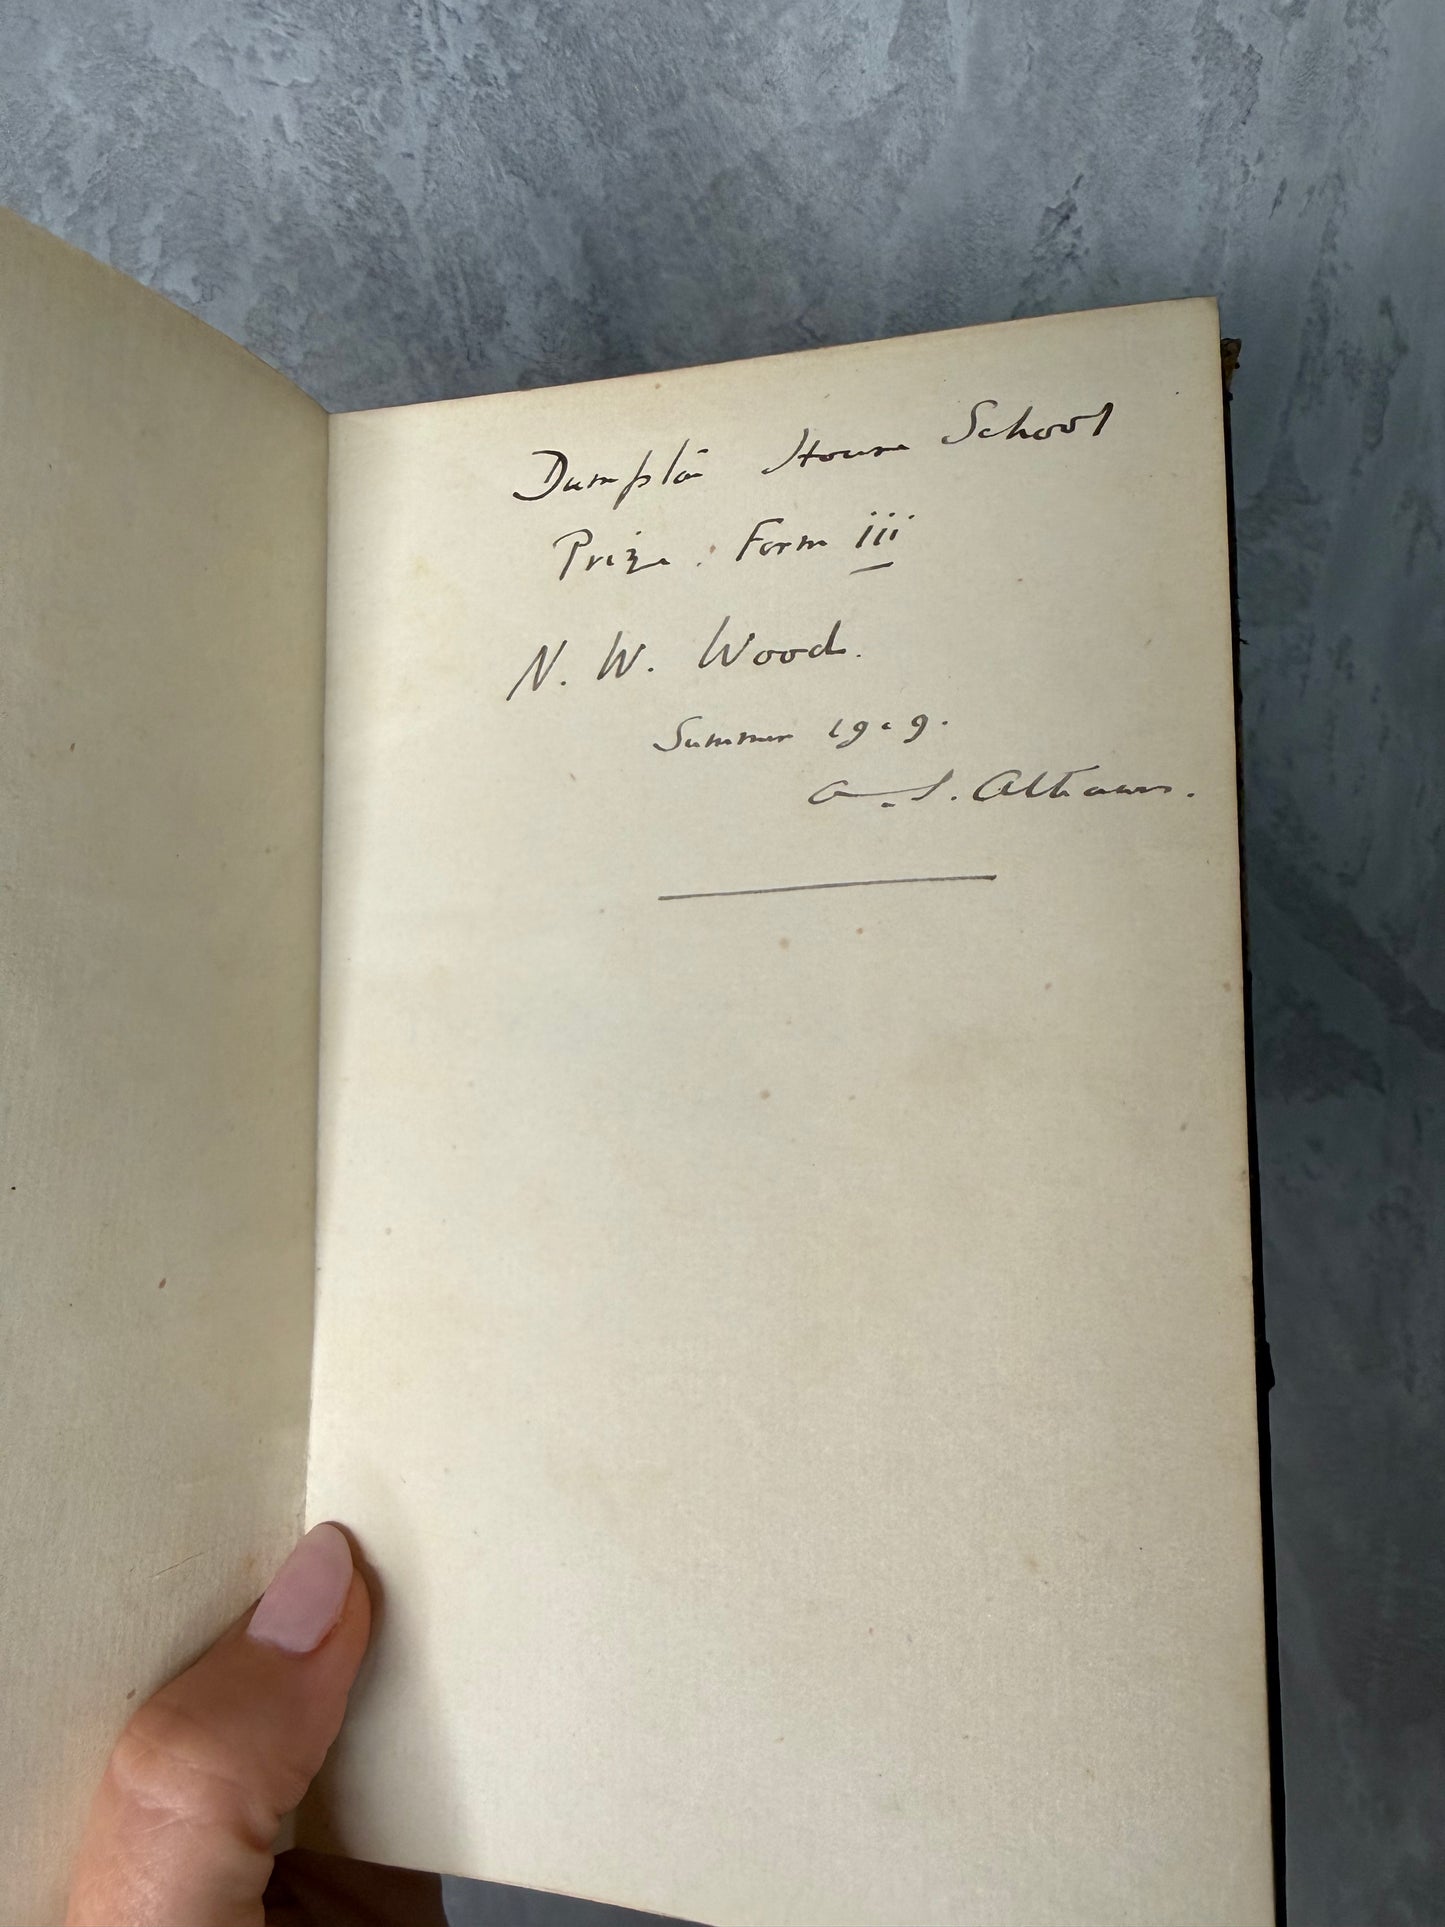 Dumpton House School
Prize. Form iii
N. W. Wood.
Summer 1909.